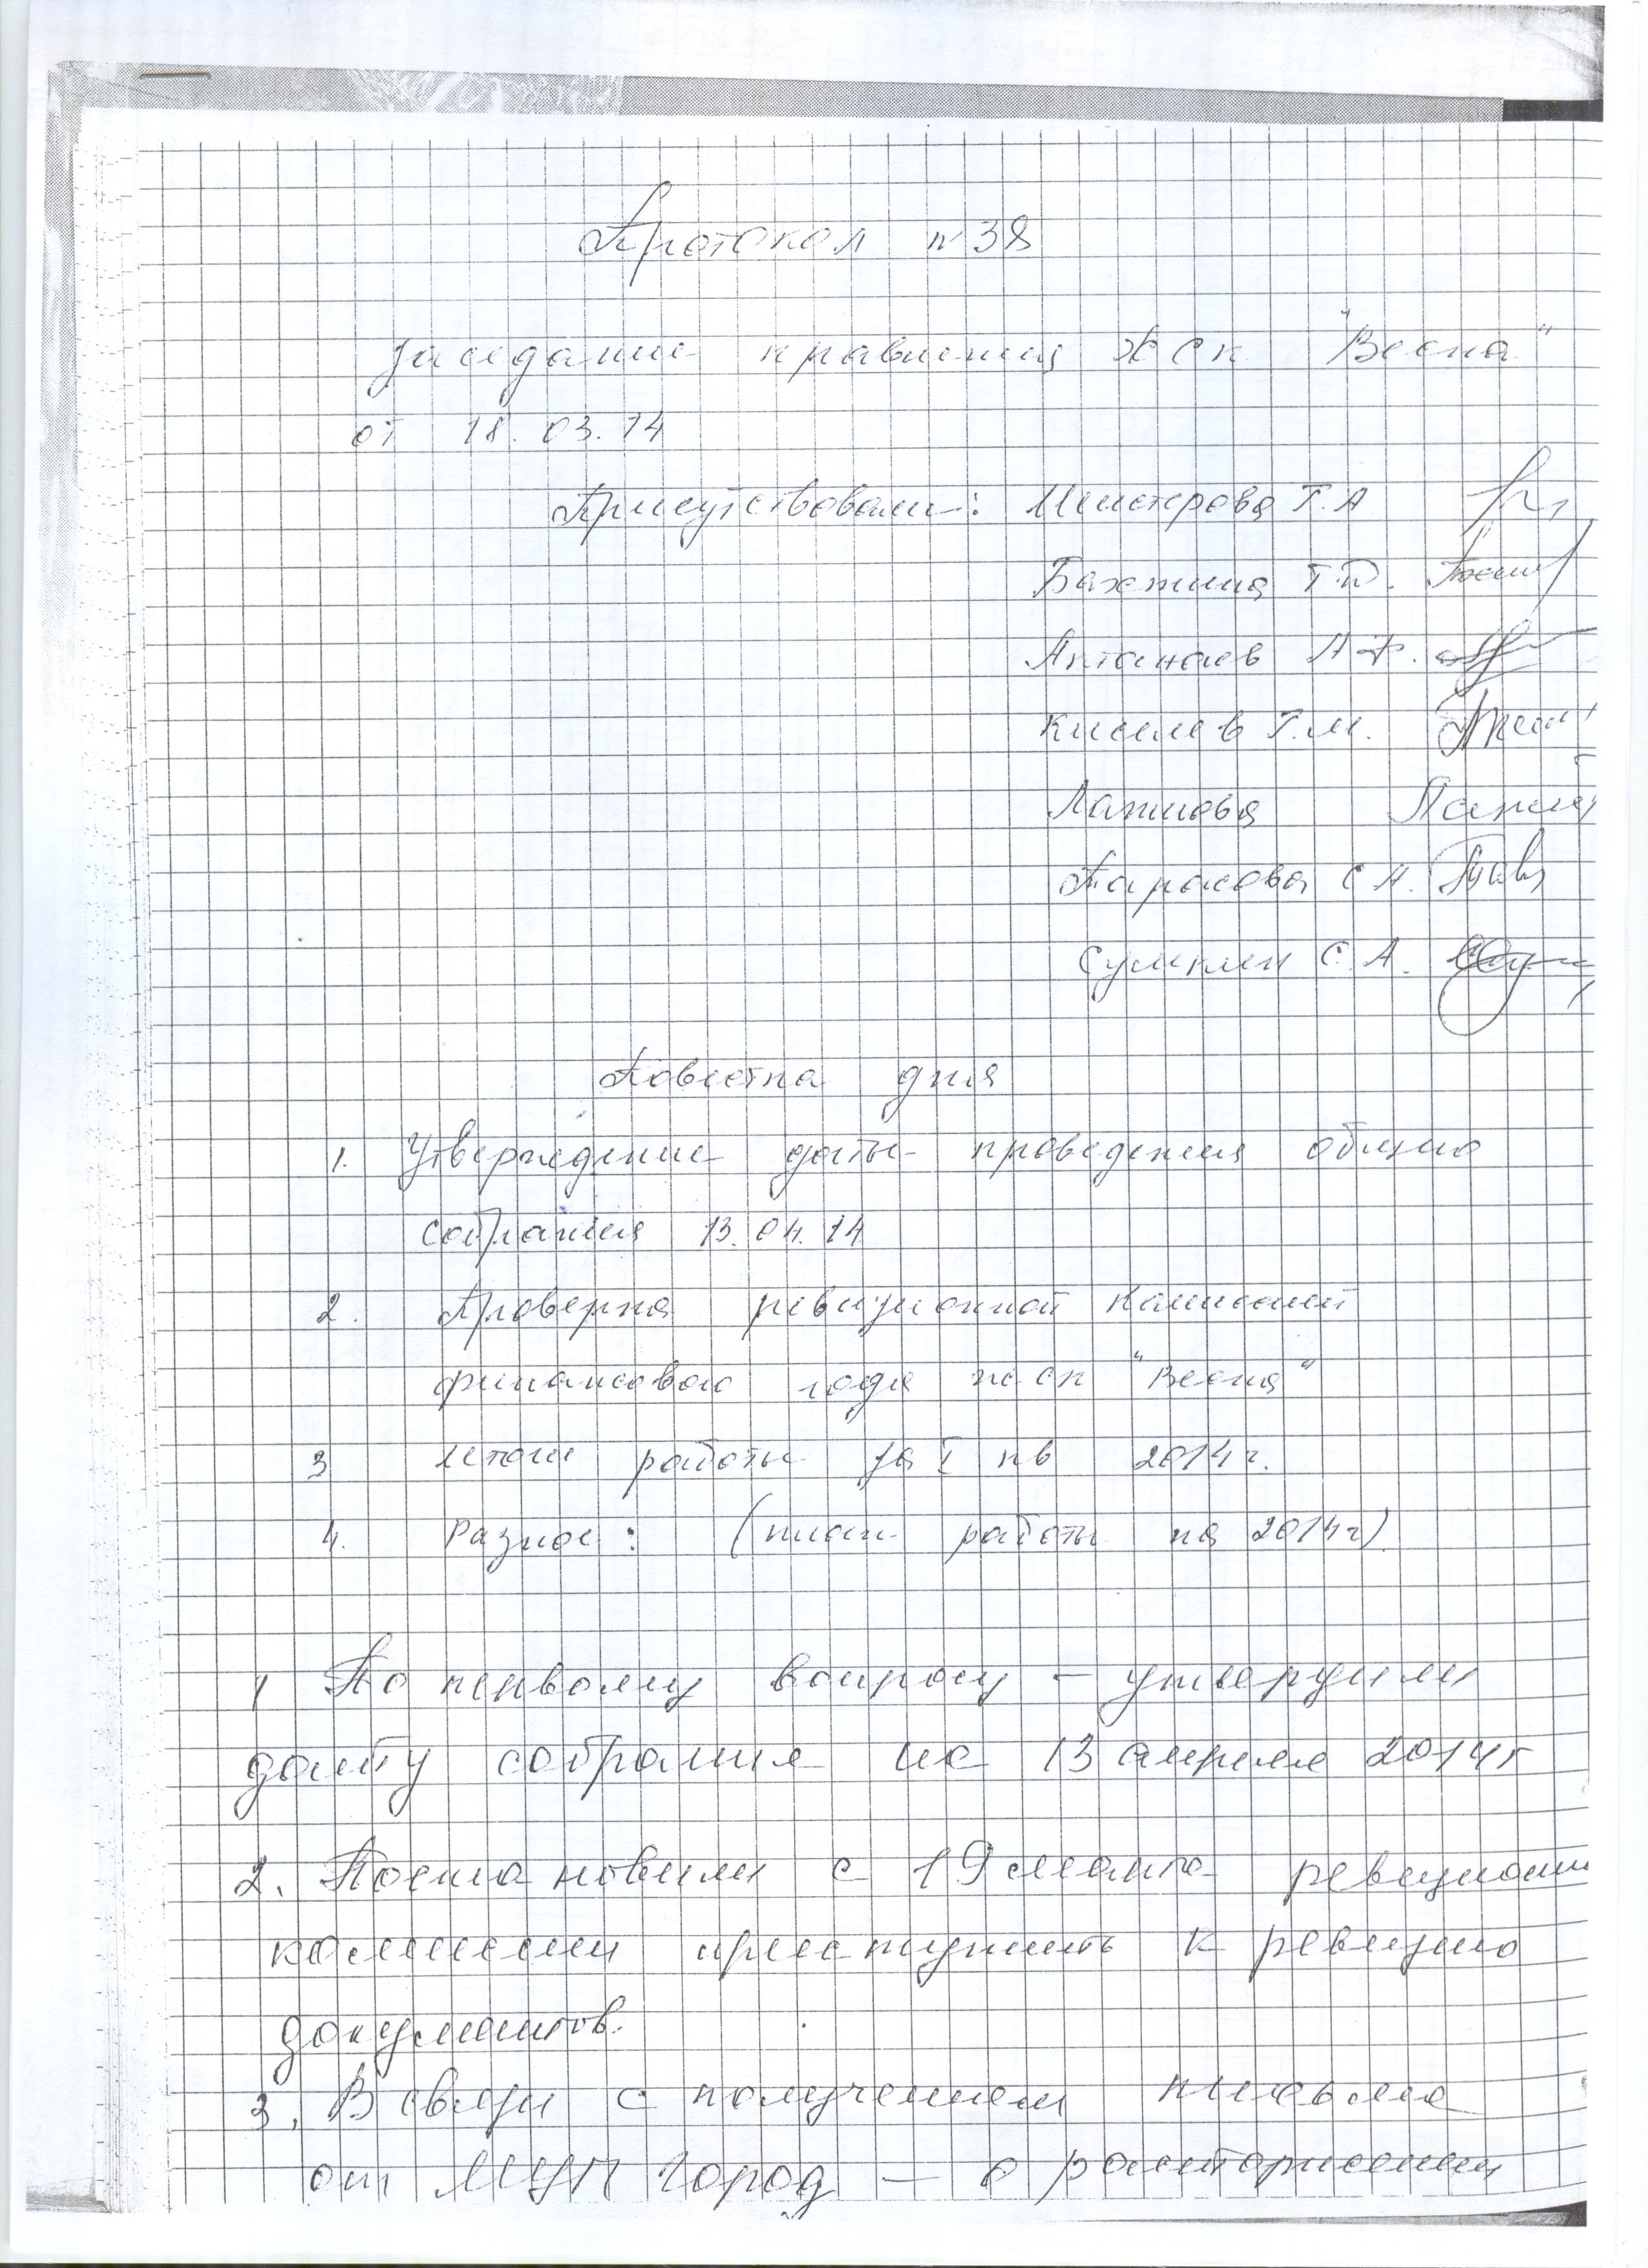 Протокол N 38
заседание правления ЖСК "Весна"
от 18.03.14
Присутствовали: Шестерова Т.А
Бахтина Т.П.
Антанаев А.Ф.
Киселев Г.М.
Лапшова
Тарасова С.А.
Сумкин С.А.
Повестка дня
1. Утверждение даты проведения общего
собрания 13.04.14
2. Проверка ревизионной комиссией
финансового года ЖСК "Весна"
3 Итоги работы за I кв 2014г.
4. Разное: (план работы на 2014г).
1 По первому вопросу - утвердили
дату собрания на 13 апреля 2014г
2. Постановили с 19 марта ревизионн
комиссии приступить к ревизию
документов.
3. В связи с получением письма
от МУП Город — о расторжении